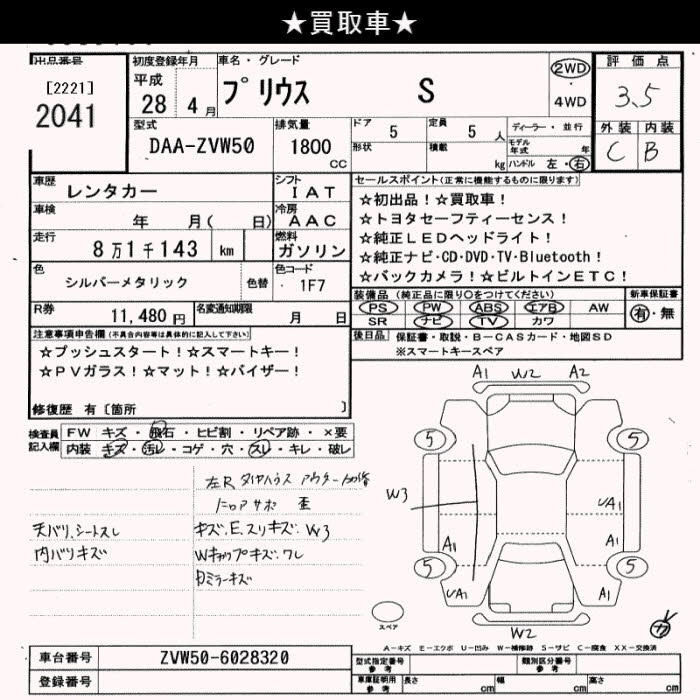 ★買取車★
出品番号
[2221]
2041
初度登録年月
平成
28 4 月
車名・グレード
プリウス S
2WD
・
4WD
評価点
3.5
外装 内装
C B
型式
DAA-ZVW50
排気量
1800
CC
ドア 5
形状
定員 5 人
積載 kg
ディーラー・並行
モデル年式 年
ハンドル 左・右
車歴
レンタカー
シフト
IAT
車検 年 月( 日)
冷房
AAC
走行
8万1千143 km
燃料
ガソリン
色
シルバーメタリック
色替
色コード
・1F7
R券
11,480 円
名変通知期限
月 日
セールスポイント(正常に機能するものに限ります)
☆初出品!☆買取車!
☆トヨタセーフティーセンス!
☆純正LEDヘッドライト!
☆純正ナビ・CD・DVD・TV・Bluetooth!
☆バックカメラ!☆ビルトインETC!
装備品(純正品に限り○をつけてください)
PS PW ABS エアB AW
SR ナビ TV カワ
新車保証書
有・無
後日品
保証書・取説・B-CASカード・地図SD
※スマートキースペア
注意事項申告欄(不具合内容等は具体的に記入して下さい)
☆プッシュスタート!☆スマートキー!
☆PVガラス!☆マット!☆バイザー!
修復歴 有〔箇所 〕
検査員
記入欄
FW キズ・飛石・ヒビ割・リペア跡・×要
内装 キズ・汚レ・コゲ・穴・スレ・キレ・破レ
左R タイヤハウス アウター
歪
天バリ、シートスレ
キズ、E、スリキズ、W3
内バリキズ
Wキャップキズ、ワレ
ミラーキズ
A1 W2 A2
5 5
W3
UA1
A1 A1
5 5
UA1 A1
W2
スペア
A-キズ E-エクボ U-凹み W-補修跡 S-サビ C-腐食 XX-交換済
車台番号
ZVW50-6028320
登録番号
型式指定番号
参考
類別区分番号
参考
車庫証明用
参考
長さ cm
幅 cm
高さ cm